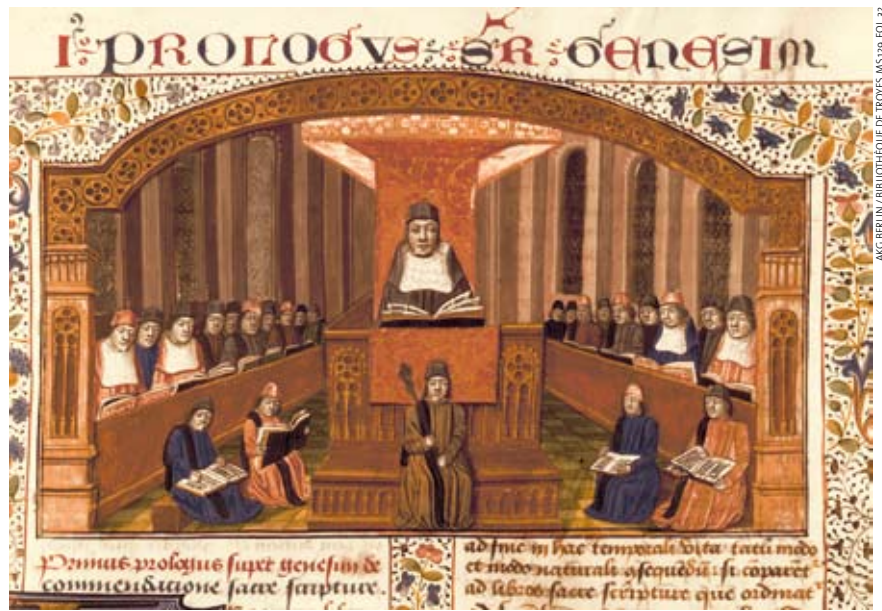 I PROLOGVS SR GENESIM
AKG BERLIN / BIBLIOTHÈQUE DE TROYES, MS 129, FOL. 32
Primus prologus super genesim de
commendacione sacre scripture.
ad fine in hac temporali vita
et modo naturali
ad libros sacre scripture que ordinat